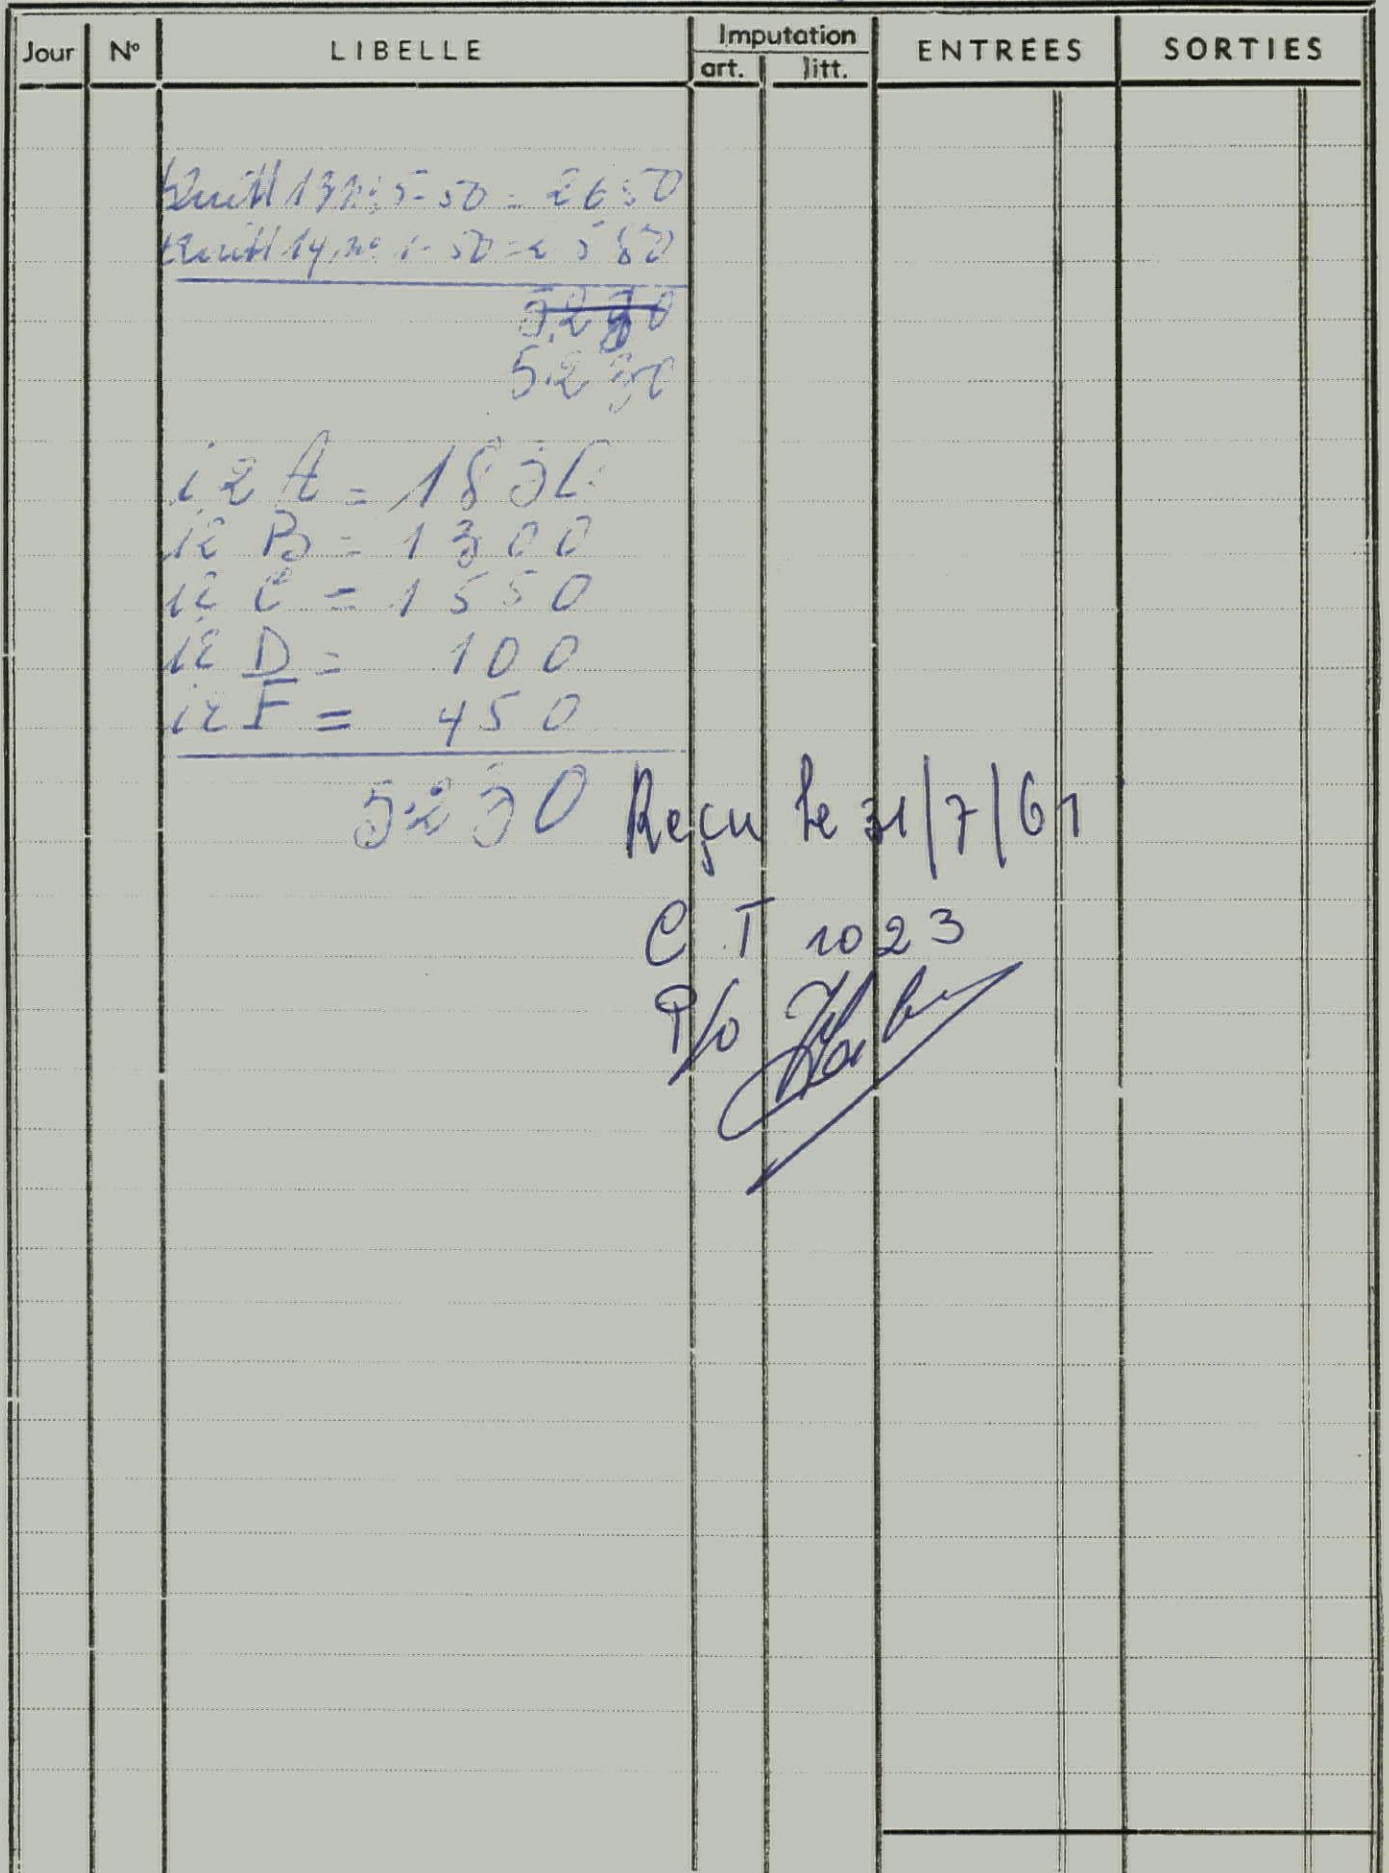 Jour N° LIBELLE Imputation ENTREES SORTIES
art. litt.
13 5-50 = 2650
14 n° 1-50 = 2580
5.230
5.230
i2 A = 1830
i2 B = 1300
i2 C = 1550
i2 D = 100
i2 F = 450
5230
Reçu le 31/7/61
C T 1023
P/o